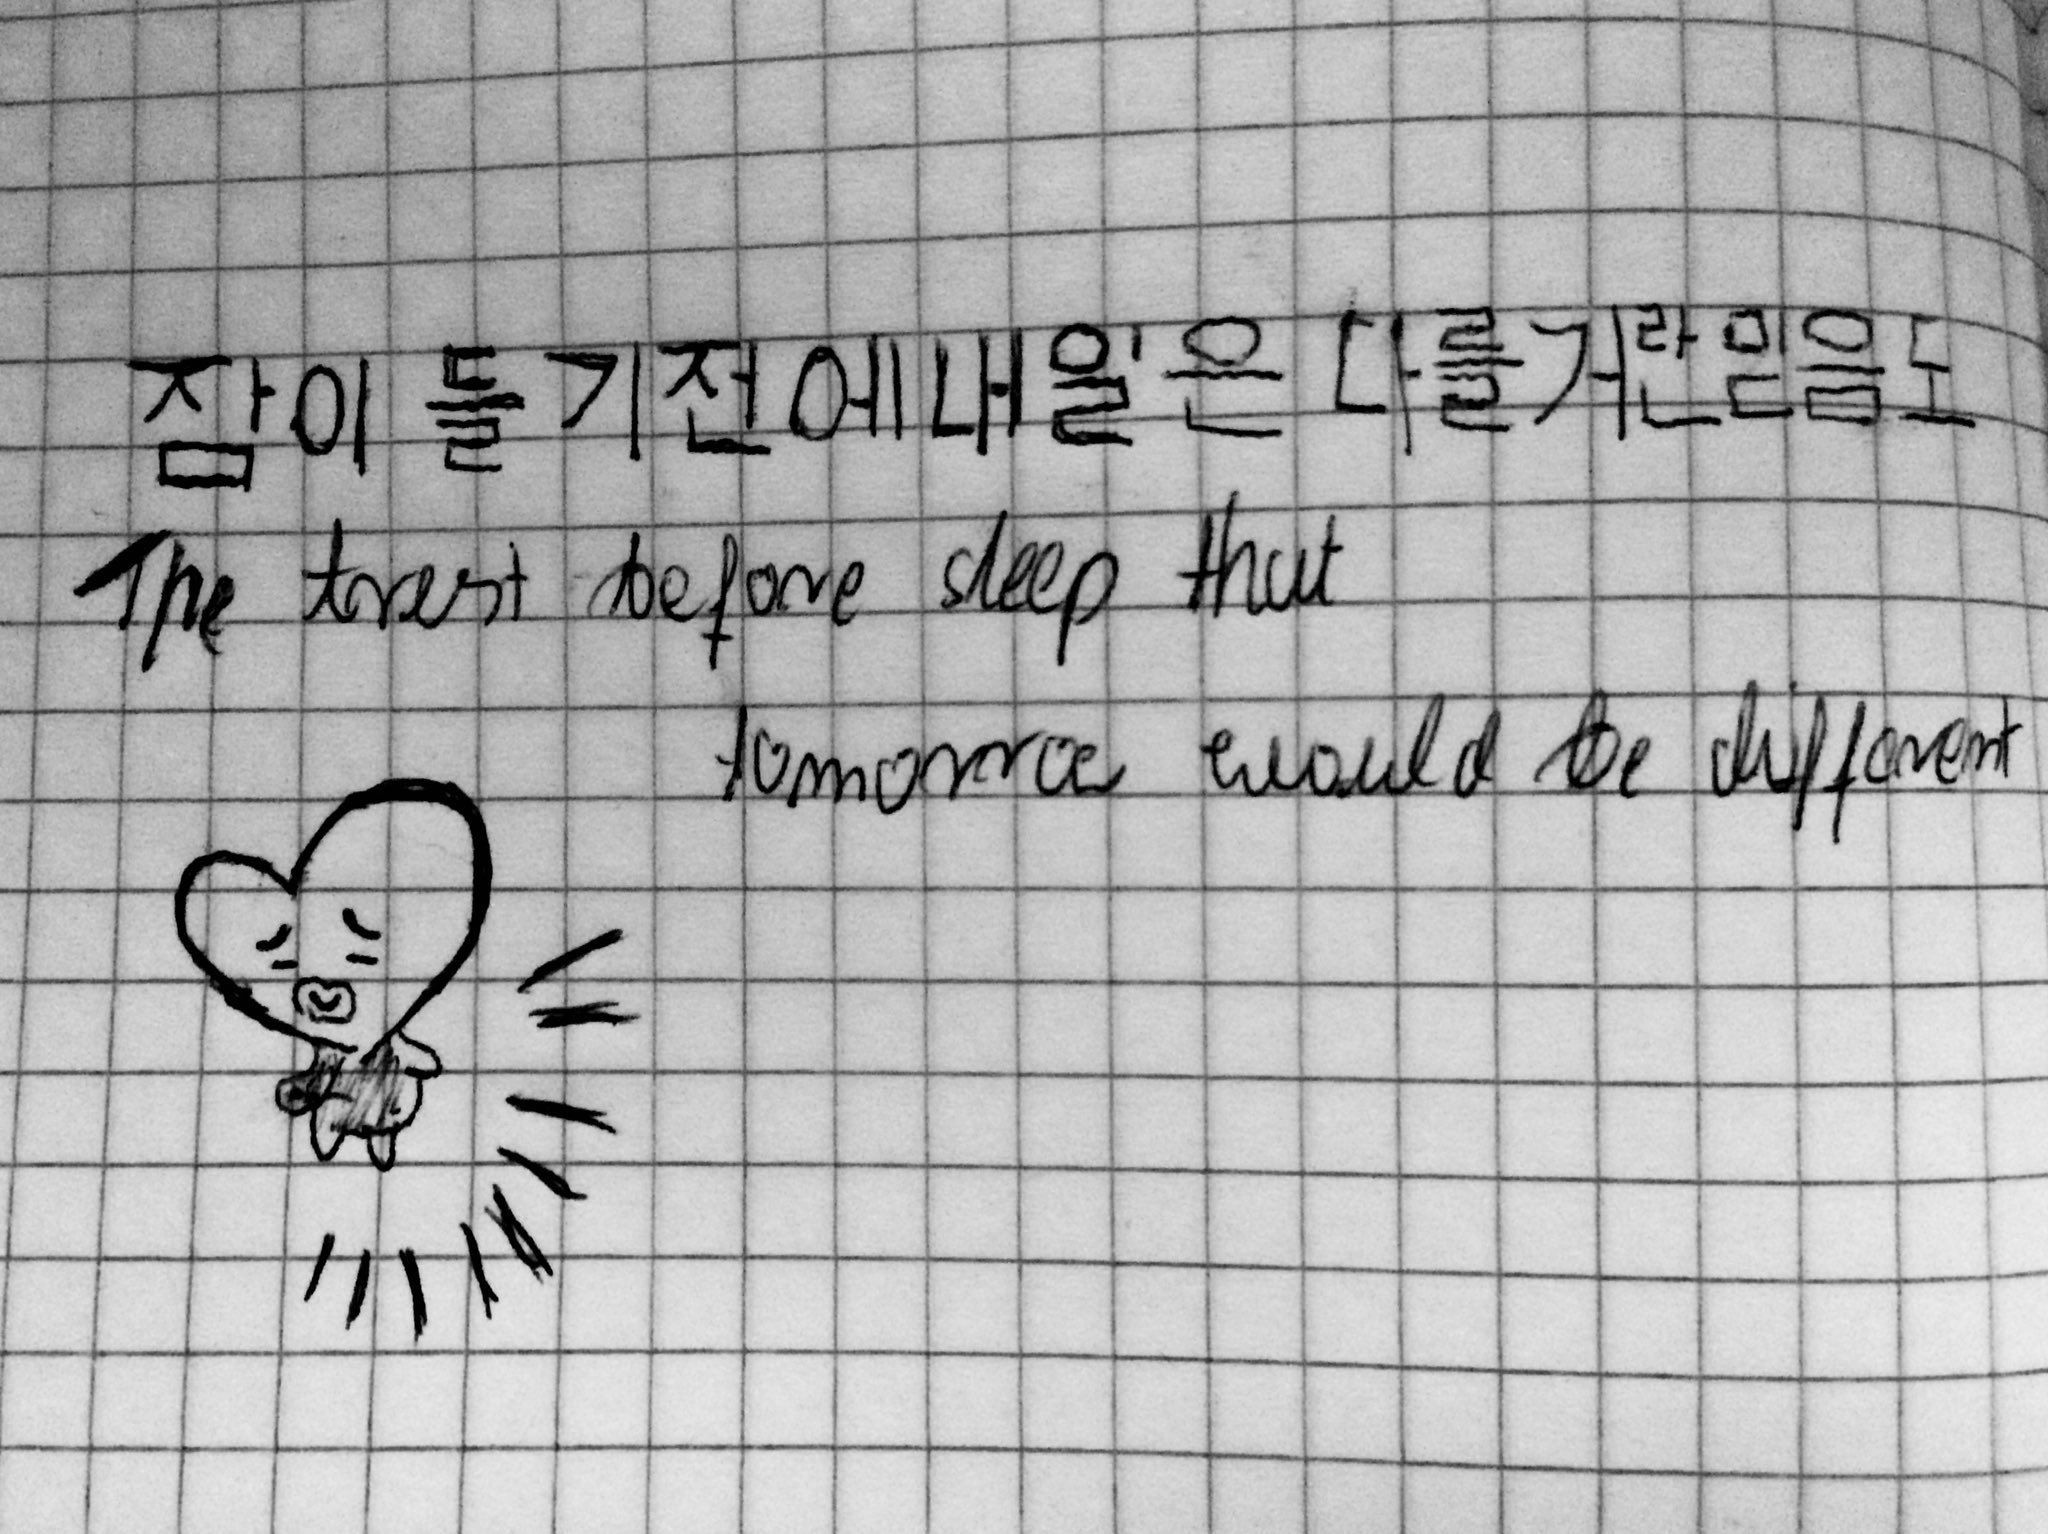 잠이 들기전에내일은 다를거란믿음도
The trust before sleep that
tomorroe would be different